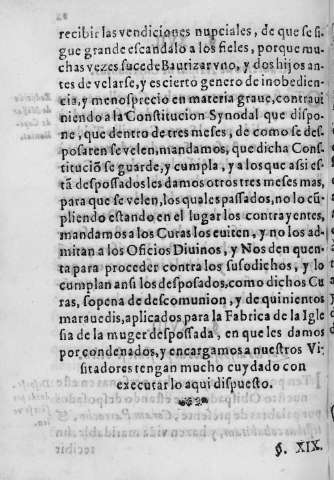 recibir las vendiciones nupciales, de que se si
gue grande escandalo a los fieles, porque mu
chas vezes sucede Bautizar vno, y dos hijos an
tes de velarse, y es cierto genero de inobedien
cia, y menosprecio en materia graue, contraui
niendo a la Constitucion Synodal que dispo
ne, que dentro de tres meses, de como se des
posaren se velen, mandamos, que dicha Cons
tituciō se guarde, y cumpla, y a los que assi es
tā desposados les damos otros tres meses mas,
para que se velen, los quales passados, no lo cū
pliendo estando en el lugar los contrayentes,
mandamos a los Curas los euiten, y no los ad-
mitan a los Oficios Diuinos, y Nos den quen-
ta para proceder contra los susodichos, y lo
cumplan ansi los desposados, como dichos Cu
ras, sopena de descomunion, y de quinientos
marauedis, aplicados para la Fabrica de la Igle
sia de la muger despossada, en que les damos
por condenados, y encargamos a nuestros Vi
sitadores tengan mucho cuydado con
executar lo aqui dispuesto.
§. XIX.